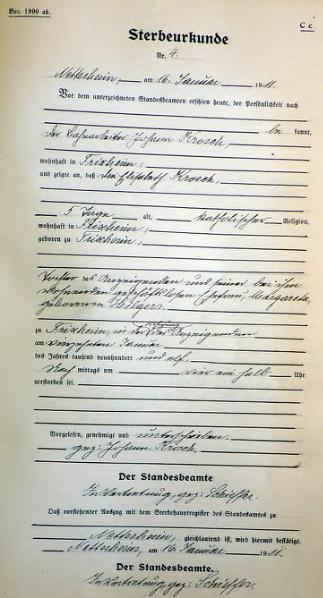 Vor. 1900 ab.
C c
Sterbeurkunde
Nr. 4.
Nettersheim, am 16. Januar 1911.
Vor dem unterzeichneten Standesbeamten erschien heute, der Persönlichkeit nach
be kannt,
der Bahnarbeiter Johann Krosch,
wohnhaft in Frixheim,
und zeigte an, daß Elisabeth Krosch,
5 Tage alt, katholischer Religion,
wohnhaft in Frixheim,
geboren zu Frixheim,
Tochter des Anzeigenden und seiner bei ihm
wohnenden Ehefrau, Margareta,
geborenen
zu Frixheim, in der Wohnung des Anzeigenden
am vierzehnten Januar
des Jahres tausend neunhundert und elf,
Nach mittags um vier ein halb Uhr
verstorben sei.
Vorgelesen, genehmigt und unterschrieben.
gez: Johann Krosch.
Der Standesbeamte
In Vertretung, gez:
Daß vorstehender Auszug mit dem Sterbehauptregister des Standesamtes zu
Nettersheim, gleichlautend ist, wird hiermit bestätigt.
Nettersheim, am 16. Januar 1911.
Der Standesbeamte.
In Vertretung, gez: